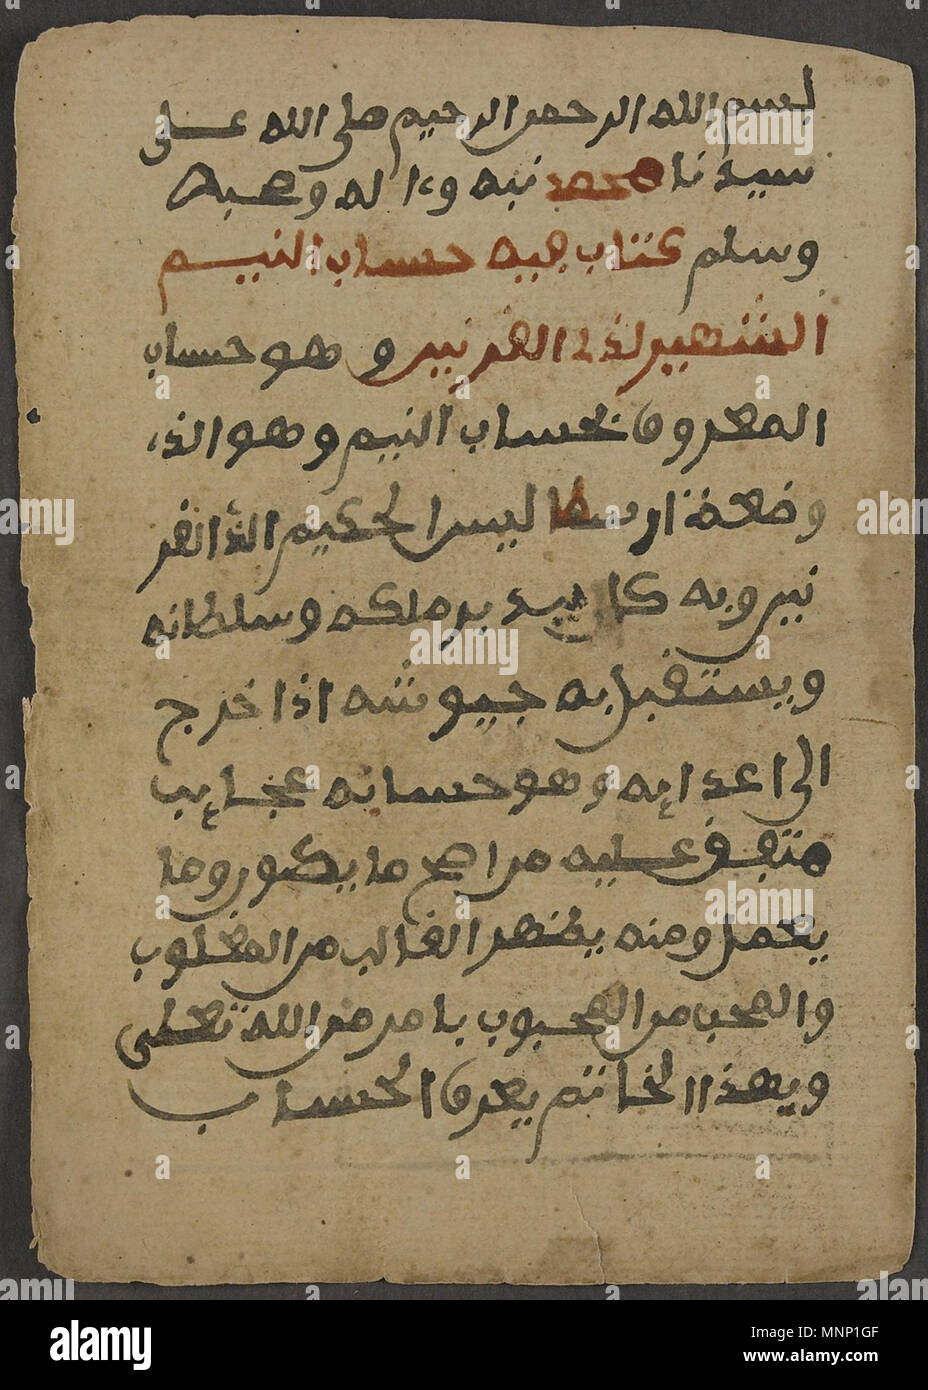 بسم الله الرحمن الرحيم صلى الله على
سيدنا محمد نبيه وءاله وصحبه
وسلم كتاب فيه حساب النيم
الشهير لذى القرنين وهو حساب
المعروف بحساب النيم وهو الذى
وضعه ارسطاليس الحكيم الذالقر
نين وبه كان يدبر ملكه وسلطانه
ويستقبل به جيوشه اذا خرج
الى اعدايه وهو حسابه عجايب
متفق عليه من اصح ما يكون وما
يعمل ومنه يظهر الغالب من المغلوب
والمحب من المحبوب بامر من الله تعلى
وبهذا الخاتم يعرف الحساب
alamy stock photo
MNP1GF
www.alamy.com